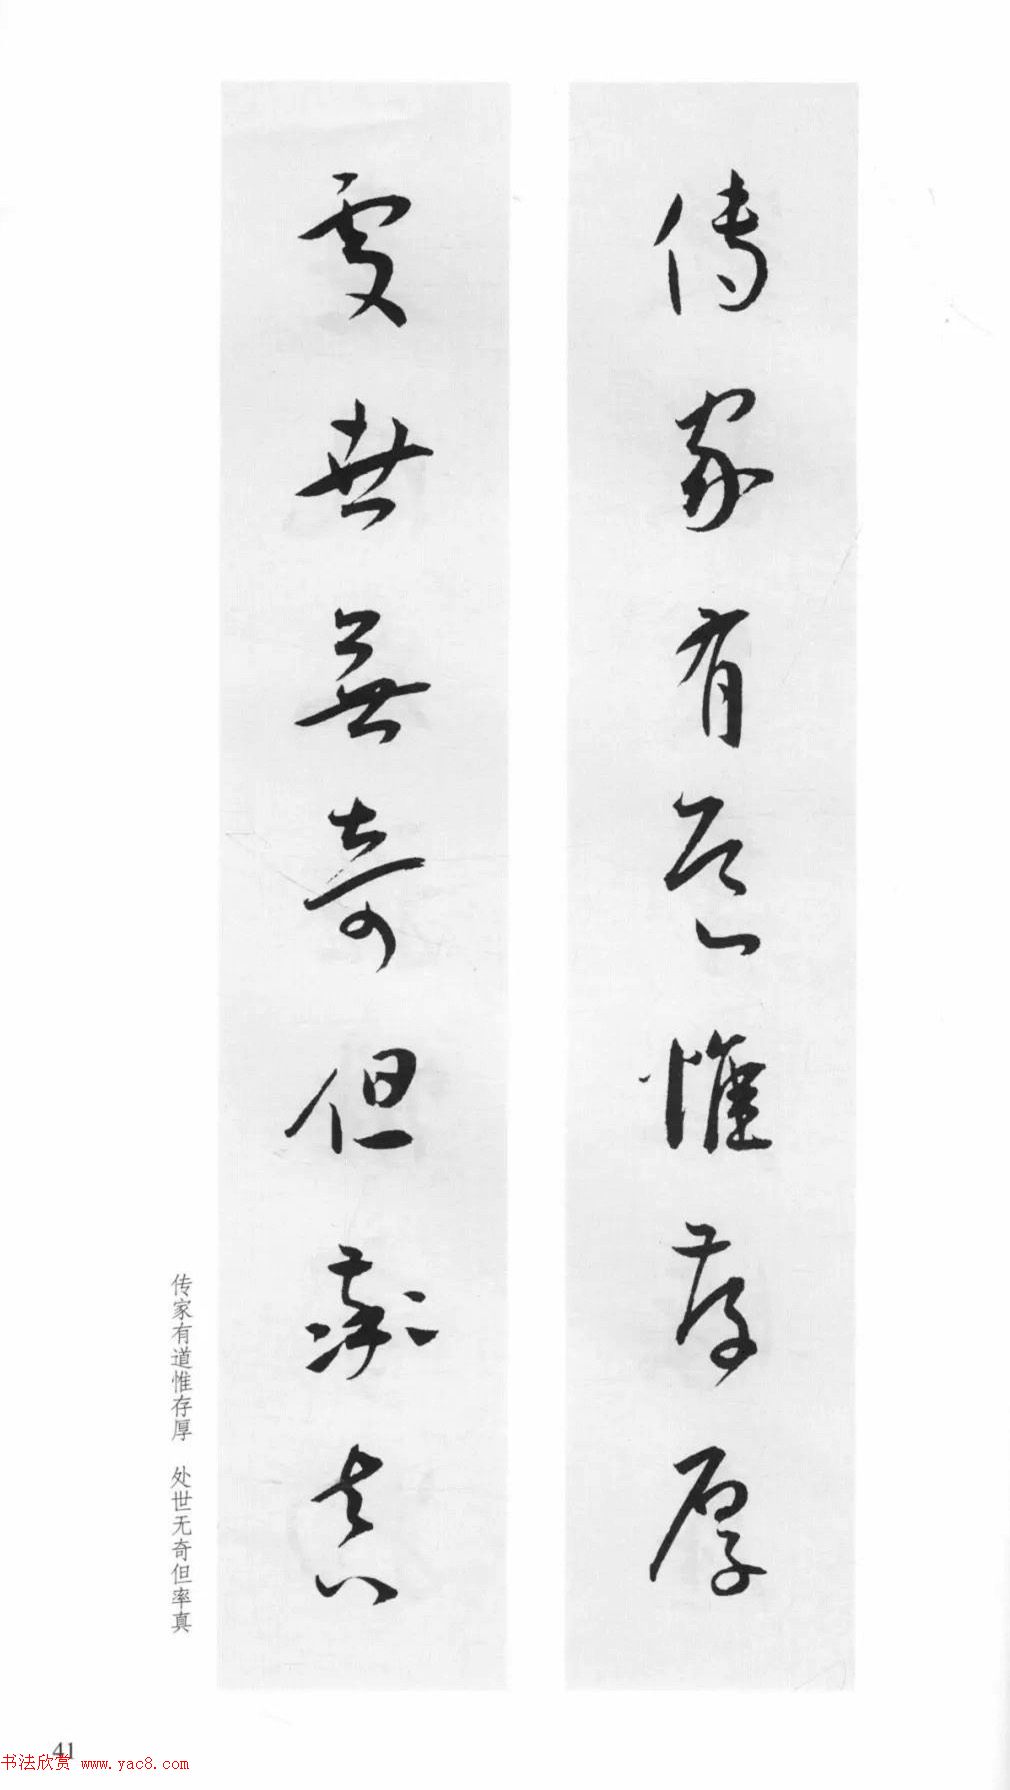 傳家有道惟存厚
處世無奇但率真
传家有道惟存厚 处世无奇但率真
41
书法欣赏 www.yac8.com